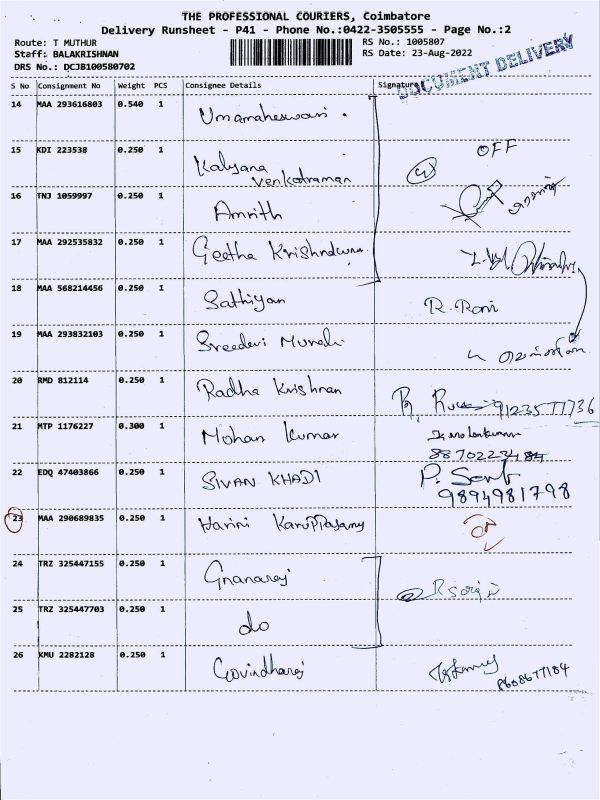 THE PROFESSIONAL COURIERS, Coimbatore
Delivery Runsheet - P41 - Phone No.:0422-3505555 - Page No.:2
Route: T MUTHUR
RS No.: 1005807
Staff: BALAKRISHNAN
RS Date: 23-Aug-2022
DRS No.: DCJB100580702
DOCUMENT DELIVERY
S No Consignment No Weight PCS Consignee Details Signature
14 MAA 293616803 0.540 1 Umamaheswari
15 KDI 223538 0.250 1 Kalyana OFF
Venkatraman
16 TNJ 1059997 0.250 1 Amrith
17 MAA 292535832 0.250 1 Geetha
18 MAA 568214456 0.250 1 Sathiyan R. Rani
19 MAA 293832103 0.250 1 Sreedevi Murali
20 RMD 812114 0.250 1 Radha Krishnan
21 MTP 1176227 0.300 1 Mohan Kumar
22 EDQ 47403866 0.250 1 SIVAN KHADI
9894981798
23 MAA 290689835 0.250 1 Harini
24 TRZ 325447155 0.250 1 Gnanaraj
25 TRZ 325447703 0.250 1 do
26 KMU 2282128 0.250 1 Govindharaj
8608677184